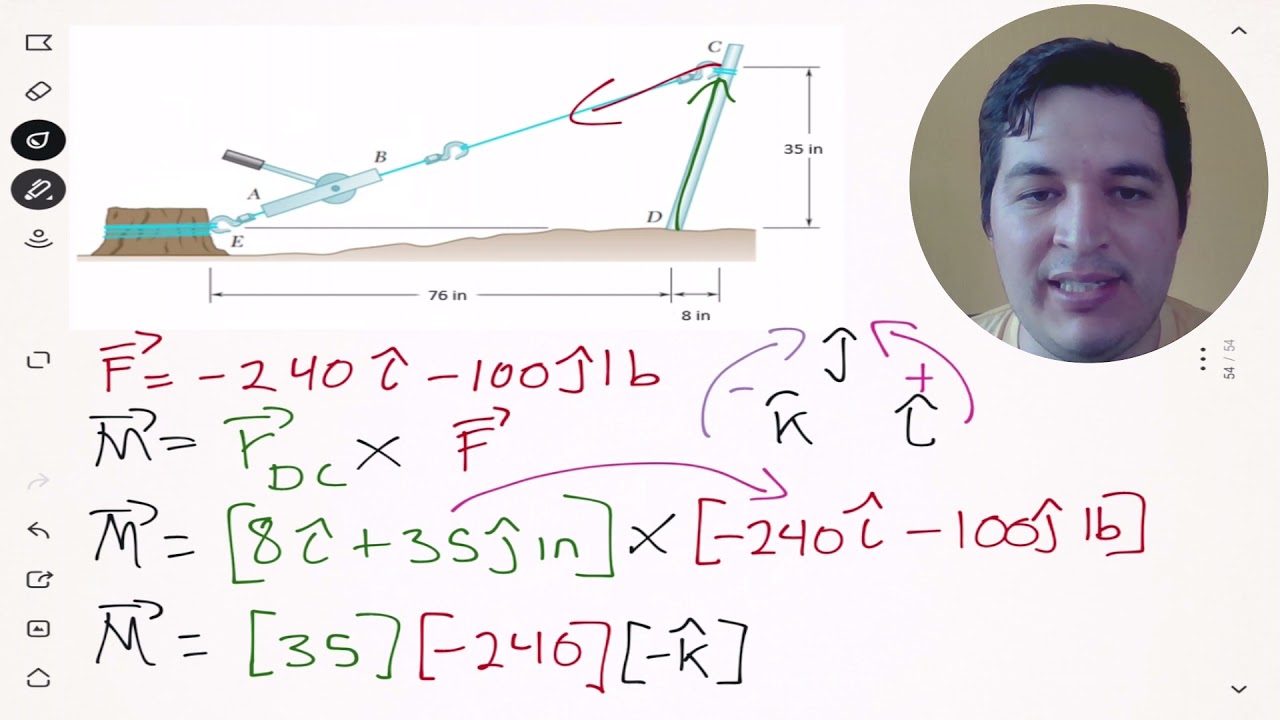 C
35 in
B
A
D
E
76 in
8 in
54 / 54
F⃗ = -240 î - 100 ĵ lb
ĵ
- +
k̂ î
M⃗ = r⃗DC × F⃗
M⃗ = [8 î + 35 ĵ in] × [-240 î - 100 ĵ lb]
M⃗ = [35] [-240] [-k̂]